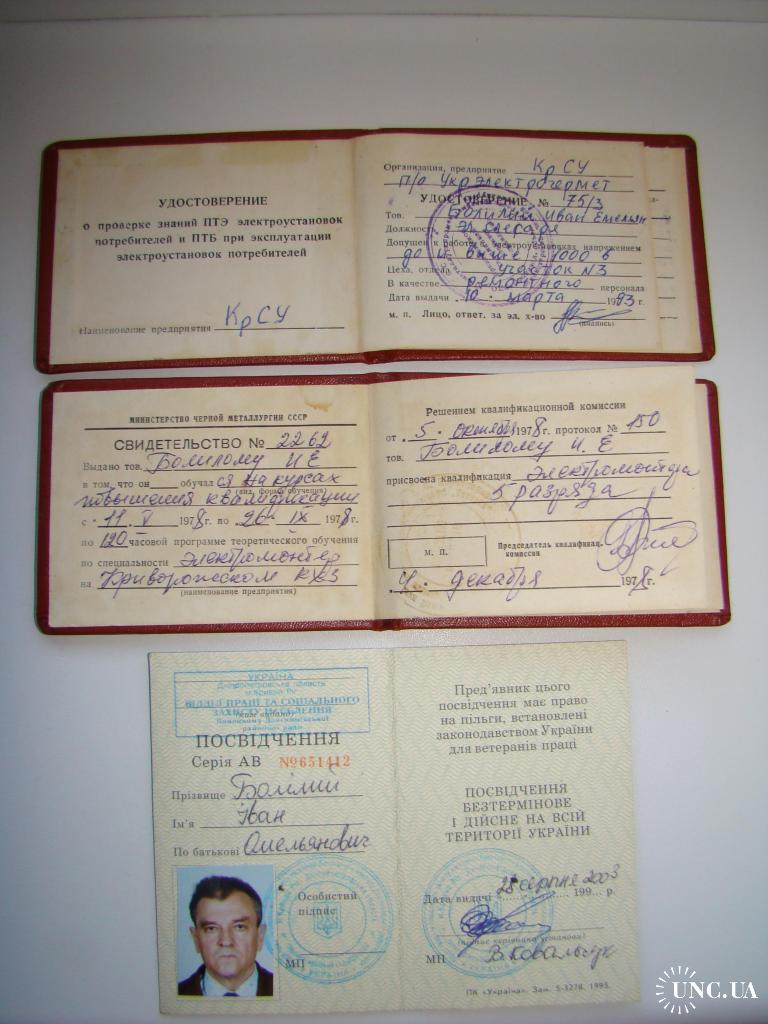 УДОСТОВЕРЕНИЕ
о проверке знаний ПТЭ электроустановок
потребителей и ПТБ при эксплуатации
электроустановок потребителей
Наименование предприятия КрСУ
Организация, предприятие КрСУ
п/о Укрэлектрочермет
УДОСТОВЕРЕНИЕ № 75/3
Тов. Иван Емельян
Должность эл. слесаря
Допущен к работе в электроустановках напряжением
до и выше 1000 в
Цеха, отдела участок №3
В качестве ремонтного персонала
Дата выдачи 10 марта 1983 г.
м. п. Лицо, ответ. за эл. х-во
(подпись)
МИНИСТЕРСТВО ЧЕРНОЙ МЕТАЛЛУРГИИ СССР
СВИДЕТЕЛЬСТВО № 2262
Выдано тов. Болилому И Е
в том, что он обучался на курсах
(вид, форма обучения)
повышения квалификации
с 11. V 1978 г. по 26. IX 1978 г.
по 120 часовой программе теоретического обучения
по специальности электромонтер
на Криворожском КХЗ
(наименование предприятия)
Решением квалификационной комиссии
от 5. октября 1978 г. протокол № 150
тов. Болилому И. Е
присвоена квалификация электромонтера
5 разряда
М. П.
Председатель квалификац.
комиссии
4. декабря 1978 г.
УКРАЇНА
Дніпропетровська область
м. Кривий Ріг
ВІДДІЛ ПРАЦІ ТА СОЦІАЛЬНОГО
ЗАХИСТУ НАСЕЛЕННЯ
районної ради
ПОСВІДЧЕННЯ
Серія АВ №651412
Прізвище Болілий
Ім'я Іван
По батькові Омельянович
Особистий
підпис
МП
Пред'явник цього
посвідчення має право
на пільги, встановлені
законодавством України
для ветеранів праці
ПОСВІДЧЕННЯ
БЕЗТЕРМІНОВЕ
І ДІЙСНЕ НА ВСІЙ
ТЕРИТОРІЇ УКРАЇНИ
Дата видачі 28 серпня 2003
199... р.
(підпис керівника установи)
МП В. Ковальчук
ПК «Україна». Зам. 5-3278. 1995.
UNC.UA